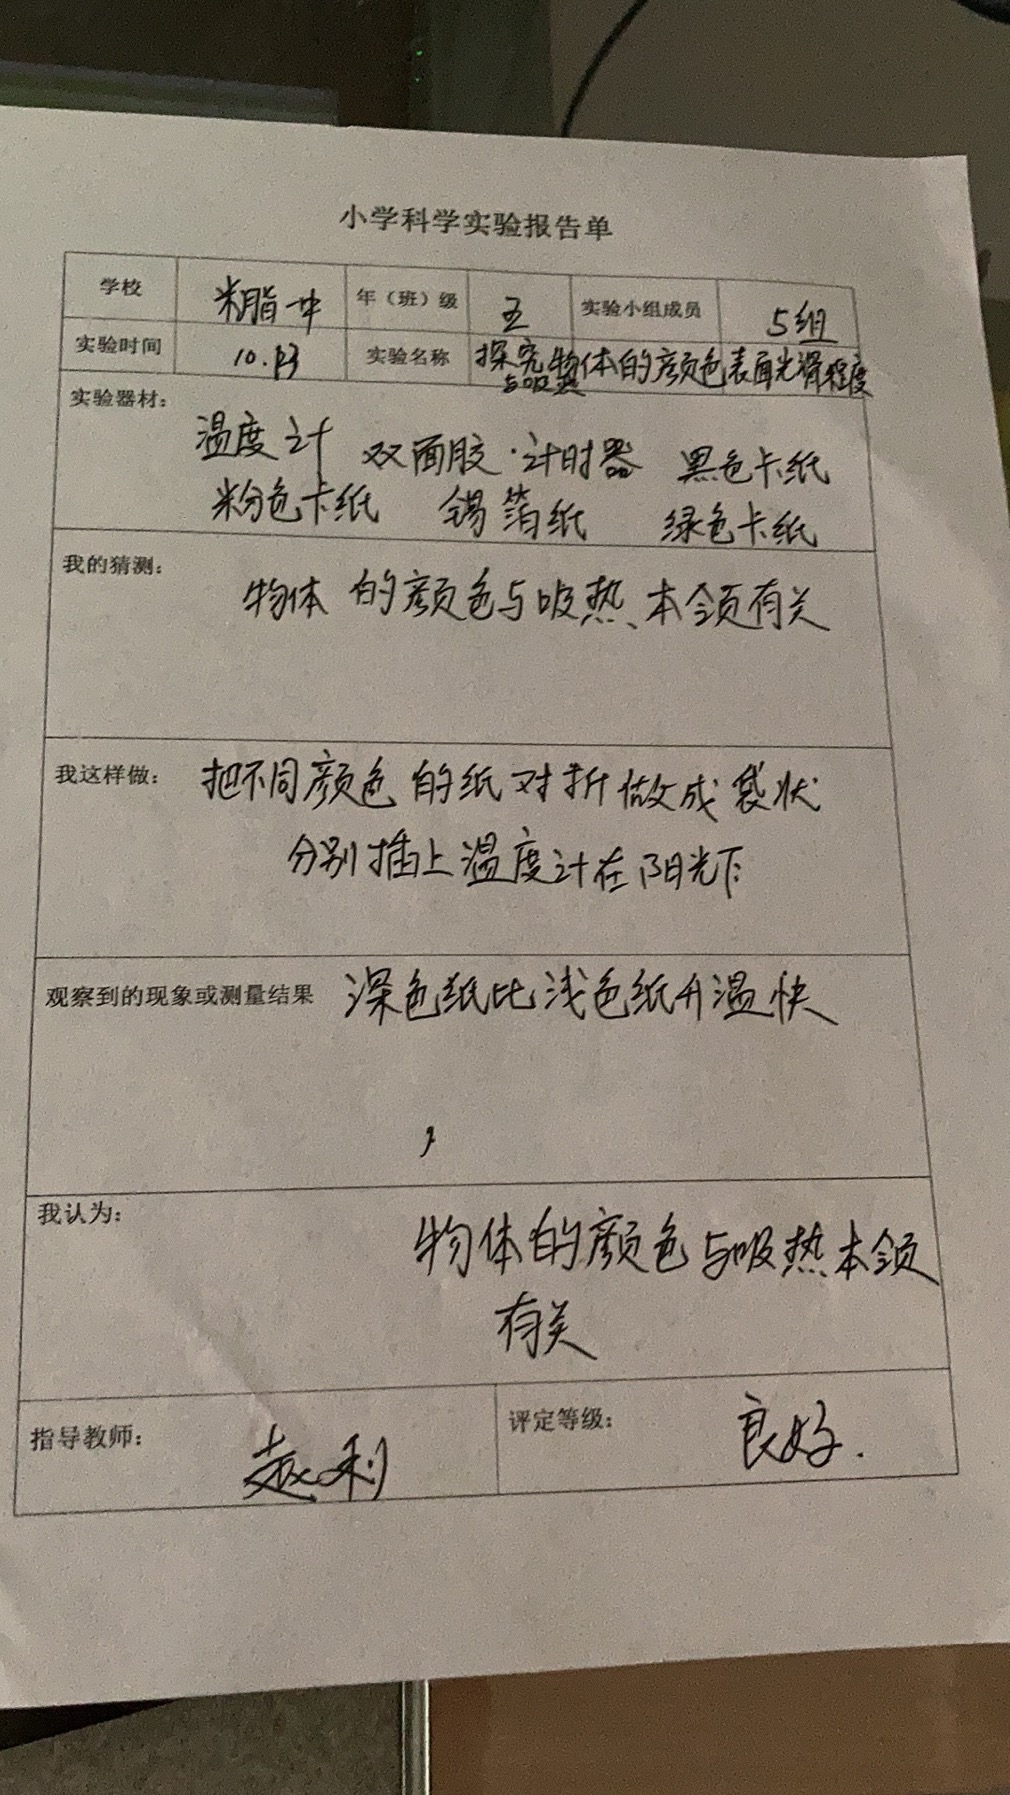 小学科学实验报告单
学校 米脂一中 年（班）级 五 实验小组成员 5组
实验时间 10. 实验名称 探究物体的颜色表面光滑程度
与吸热
实验器材：
温度计 双面胶·计时器 黑色卡纸
粉色卡纸 锡箔纸 绿色卡纸
我的猜测：
物体的颜色与吸热、本领有关
我这样做： 把不同颜色的纸对折做成袋状
分别插上温度计在阳光下
观察到的现象或测量结果 深色纸比浅色纸升温快
，
我认为：
物体的颜色与吸热本领
有关
指导教师： 赵利 评定等级： 良好.